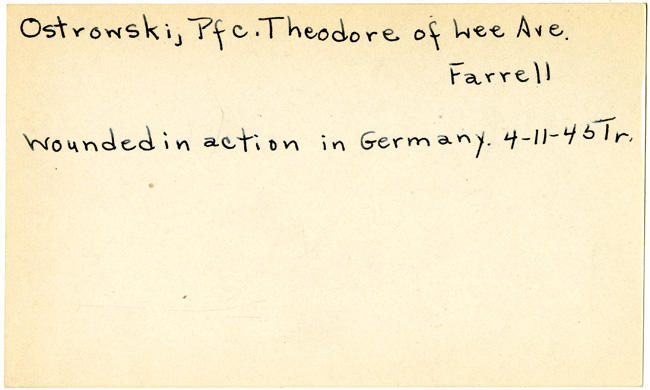 Ostrowski, Pfc. Theodore of Lee Ave.
Farrell
Wounded in action in Germany. 4-11-45 Tr.